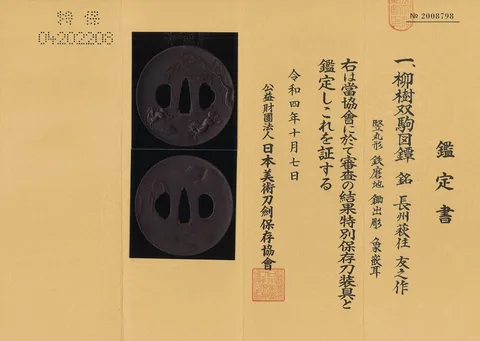 № 2008798
鑑定書
一、柳樹双駒図鐔 銘 長州萩住友之作
竪丸形 鉄磨地 鋤出彫 象嵌耳
右は當協會に於て審査の結果特別保存刀装具と
鑑定しこれを証する
令和四年十月七日
公益財團法人日本美術刀剣保存協會
特保
04202208